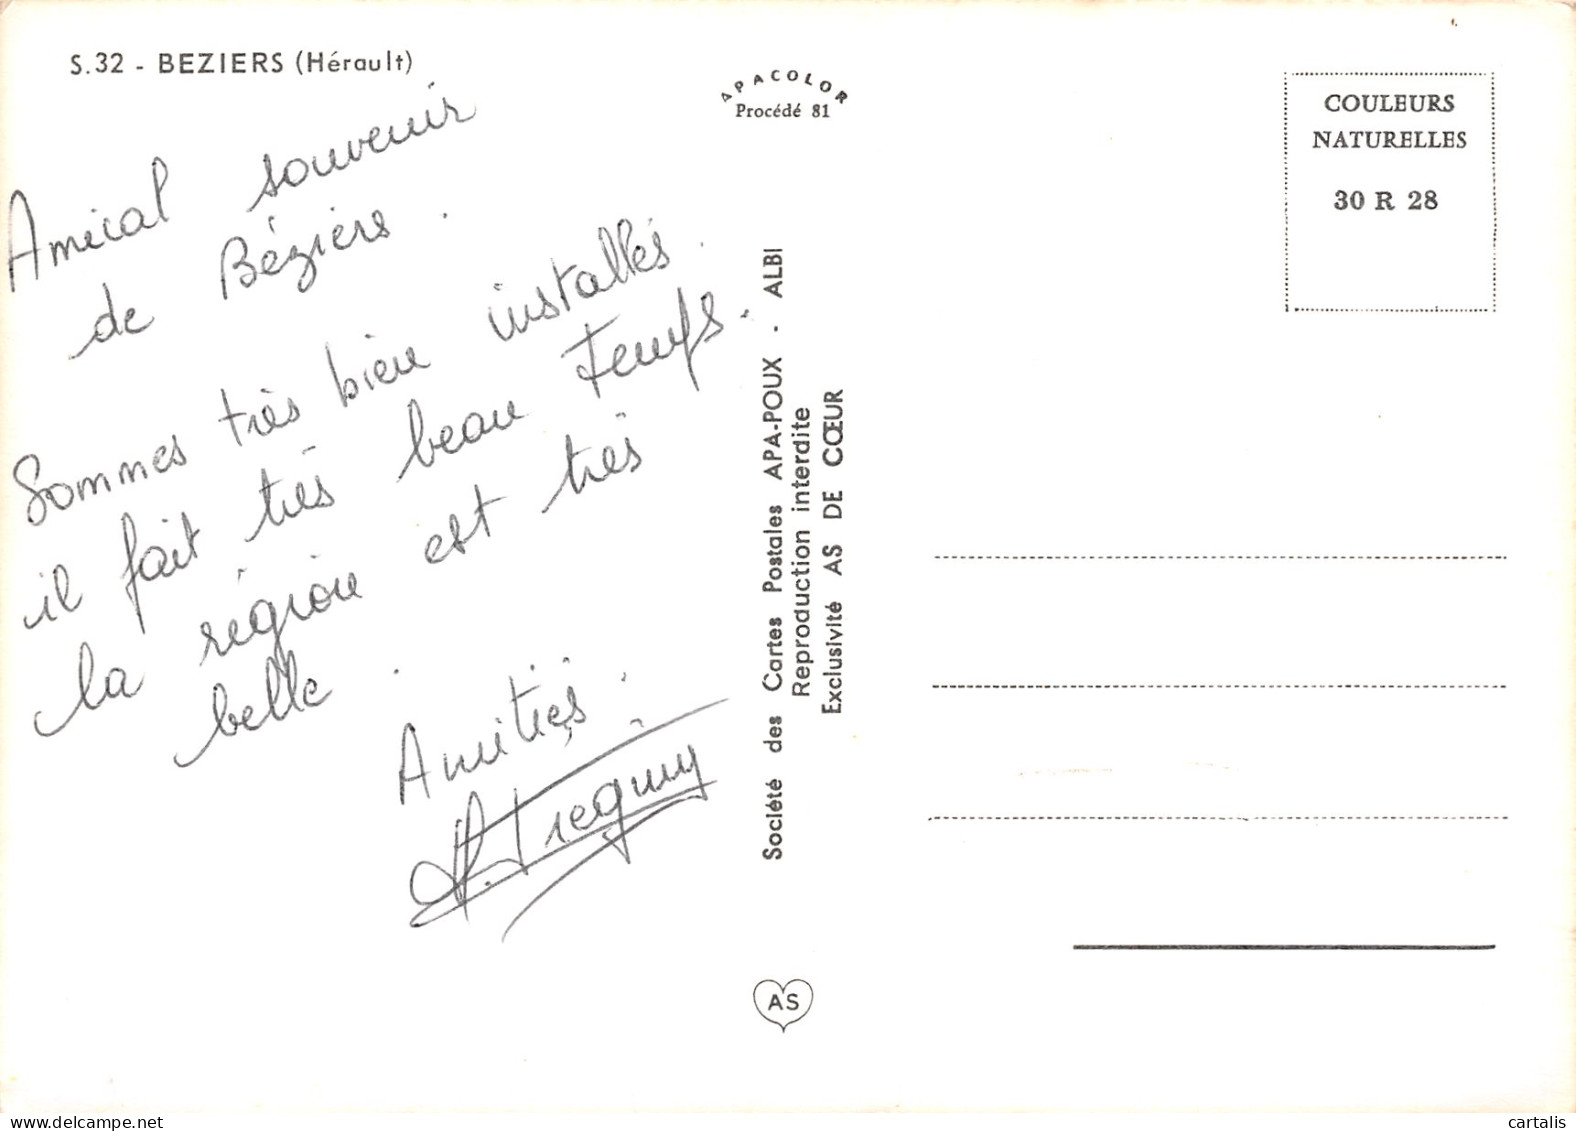 S.32 - BEZIERS (Hérault)
Amical souvenir
de Béziers.
Sommes très bien installés.
il fait très beau temps.
la région est très
belle.
Amitiés.
APACOLOR
Procédé 81
Société des Cartes Postales APA-POUX - ALBI
Reproduction interdite
Exclusivité AS DE CŒUR
AS
COULEURS
NATURELLES
30 R 28
www.delcampe.net
cartalis